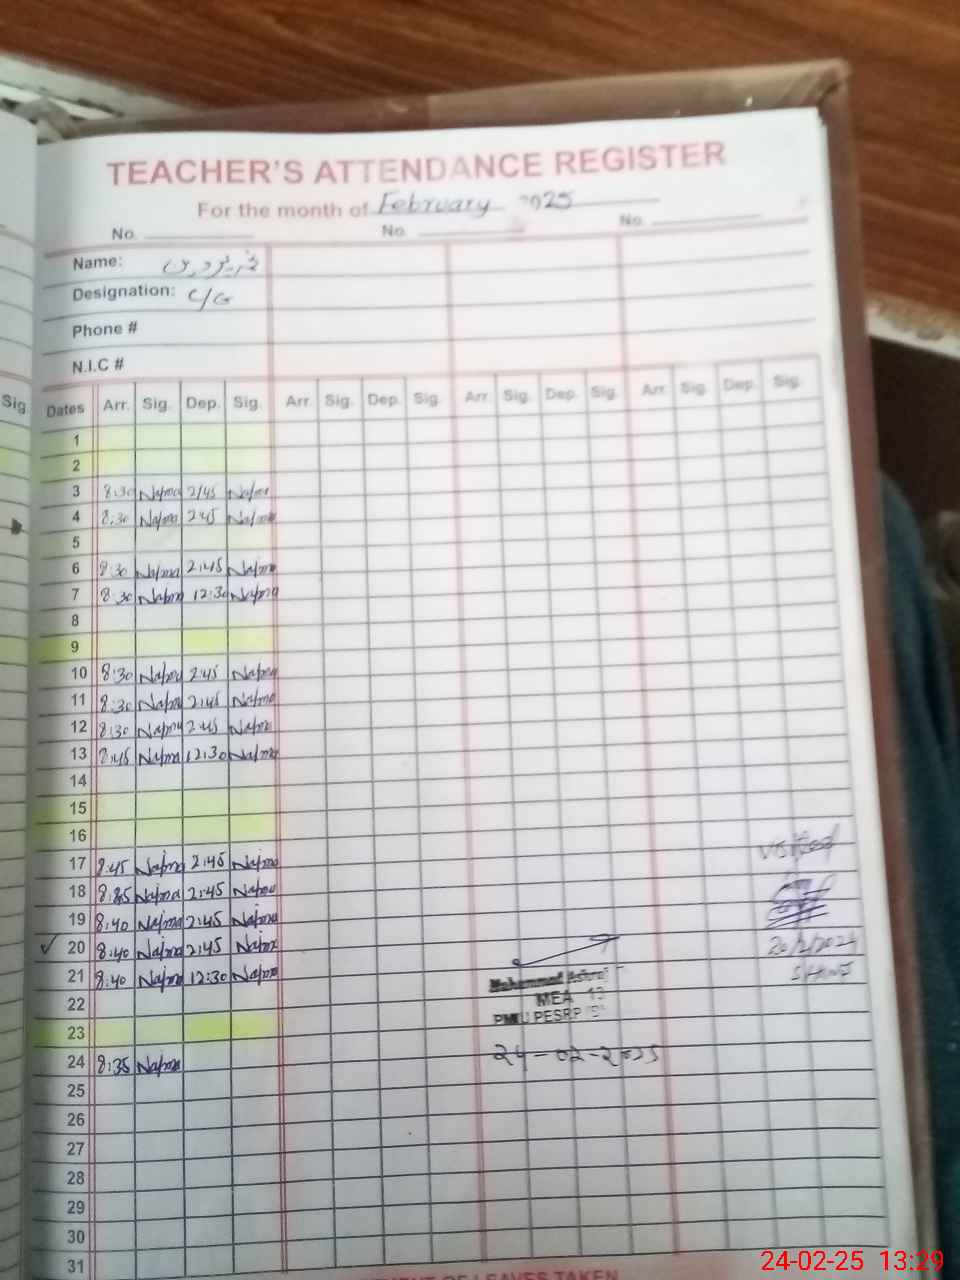 TEACHER'S ATTENDANCE REGISTER
For the month of February 2025
No. No. No.
Name:
Designation: C/G
Phone #
N.I.C #
Sig.
Dates Arr. Sig. Dep. Sig. Arr. Sig. Dep. Sig. Arr. Sig. Dep. Sig. Arr. Sig. Dep. Sig.
1
2
3 8:30 Najma 2:45 Najma
4 8:30 Najma 2:45 Najma
5
6 8:30 Najma 2:45 Najma
7 8:30 Najma 12:30 Najma
8
9
10 8:30 Najma 2:45 Najma
11 8:30 Najma 2:45 Najma
12 8:30 Najma 2:45 Najma
13 8:45 Najma 12:30 Najma
14
15
16
17 8:45 Najma 2:45 Najma
18 Najma 2:45 Najma
19 8:40 Najma 2:45 Najma
20 8:40 Najma 2:45 Najma 20/2/2024
21 8:40 Najma 12:30 Najma
Muhammad Ashraf
22
MEA 13
PMIU PESRP
23
24 8:35 Najma 24-02-2025
25
26
27
28
29
30
31
OF LEAVES TAKEN
24-02-25 13:29